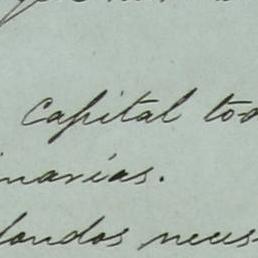 Capital tod
inarias.
fondos neces